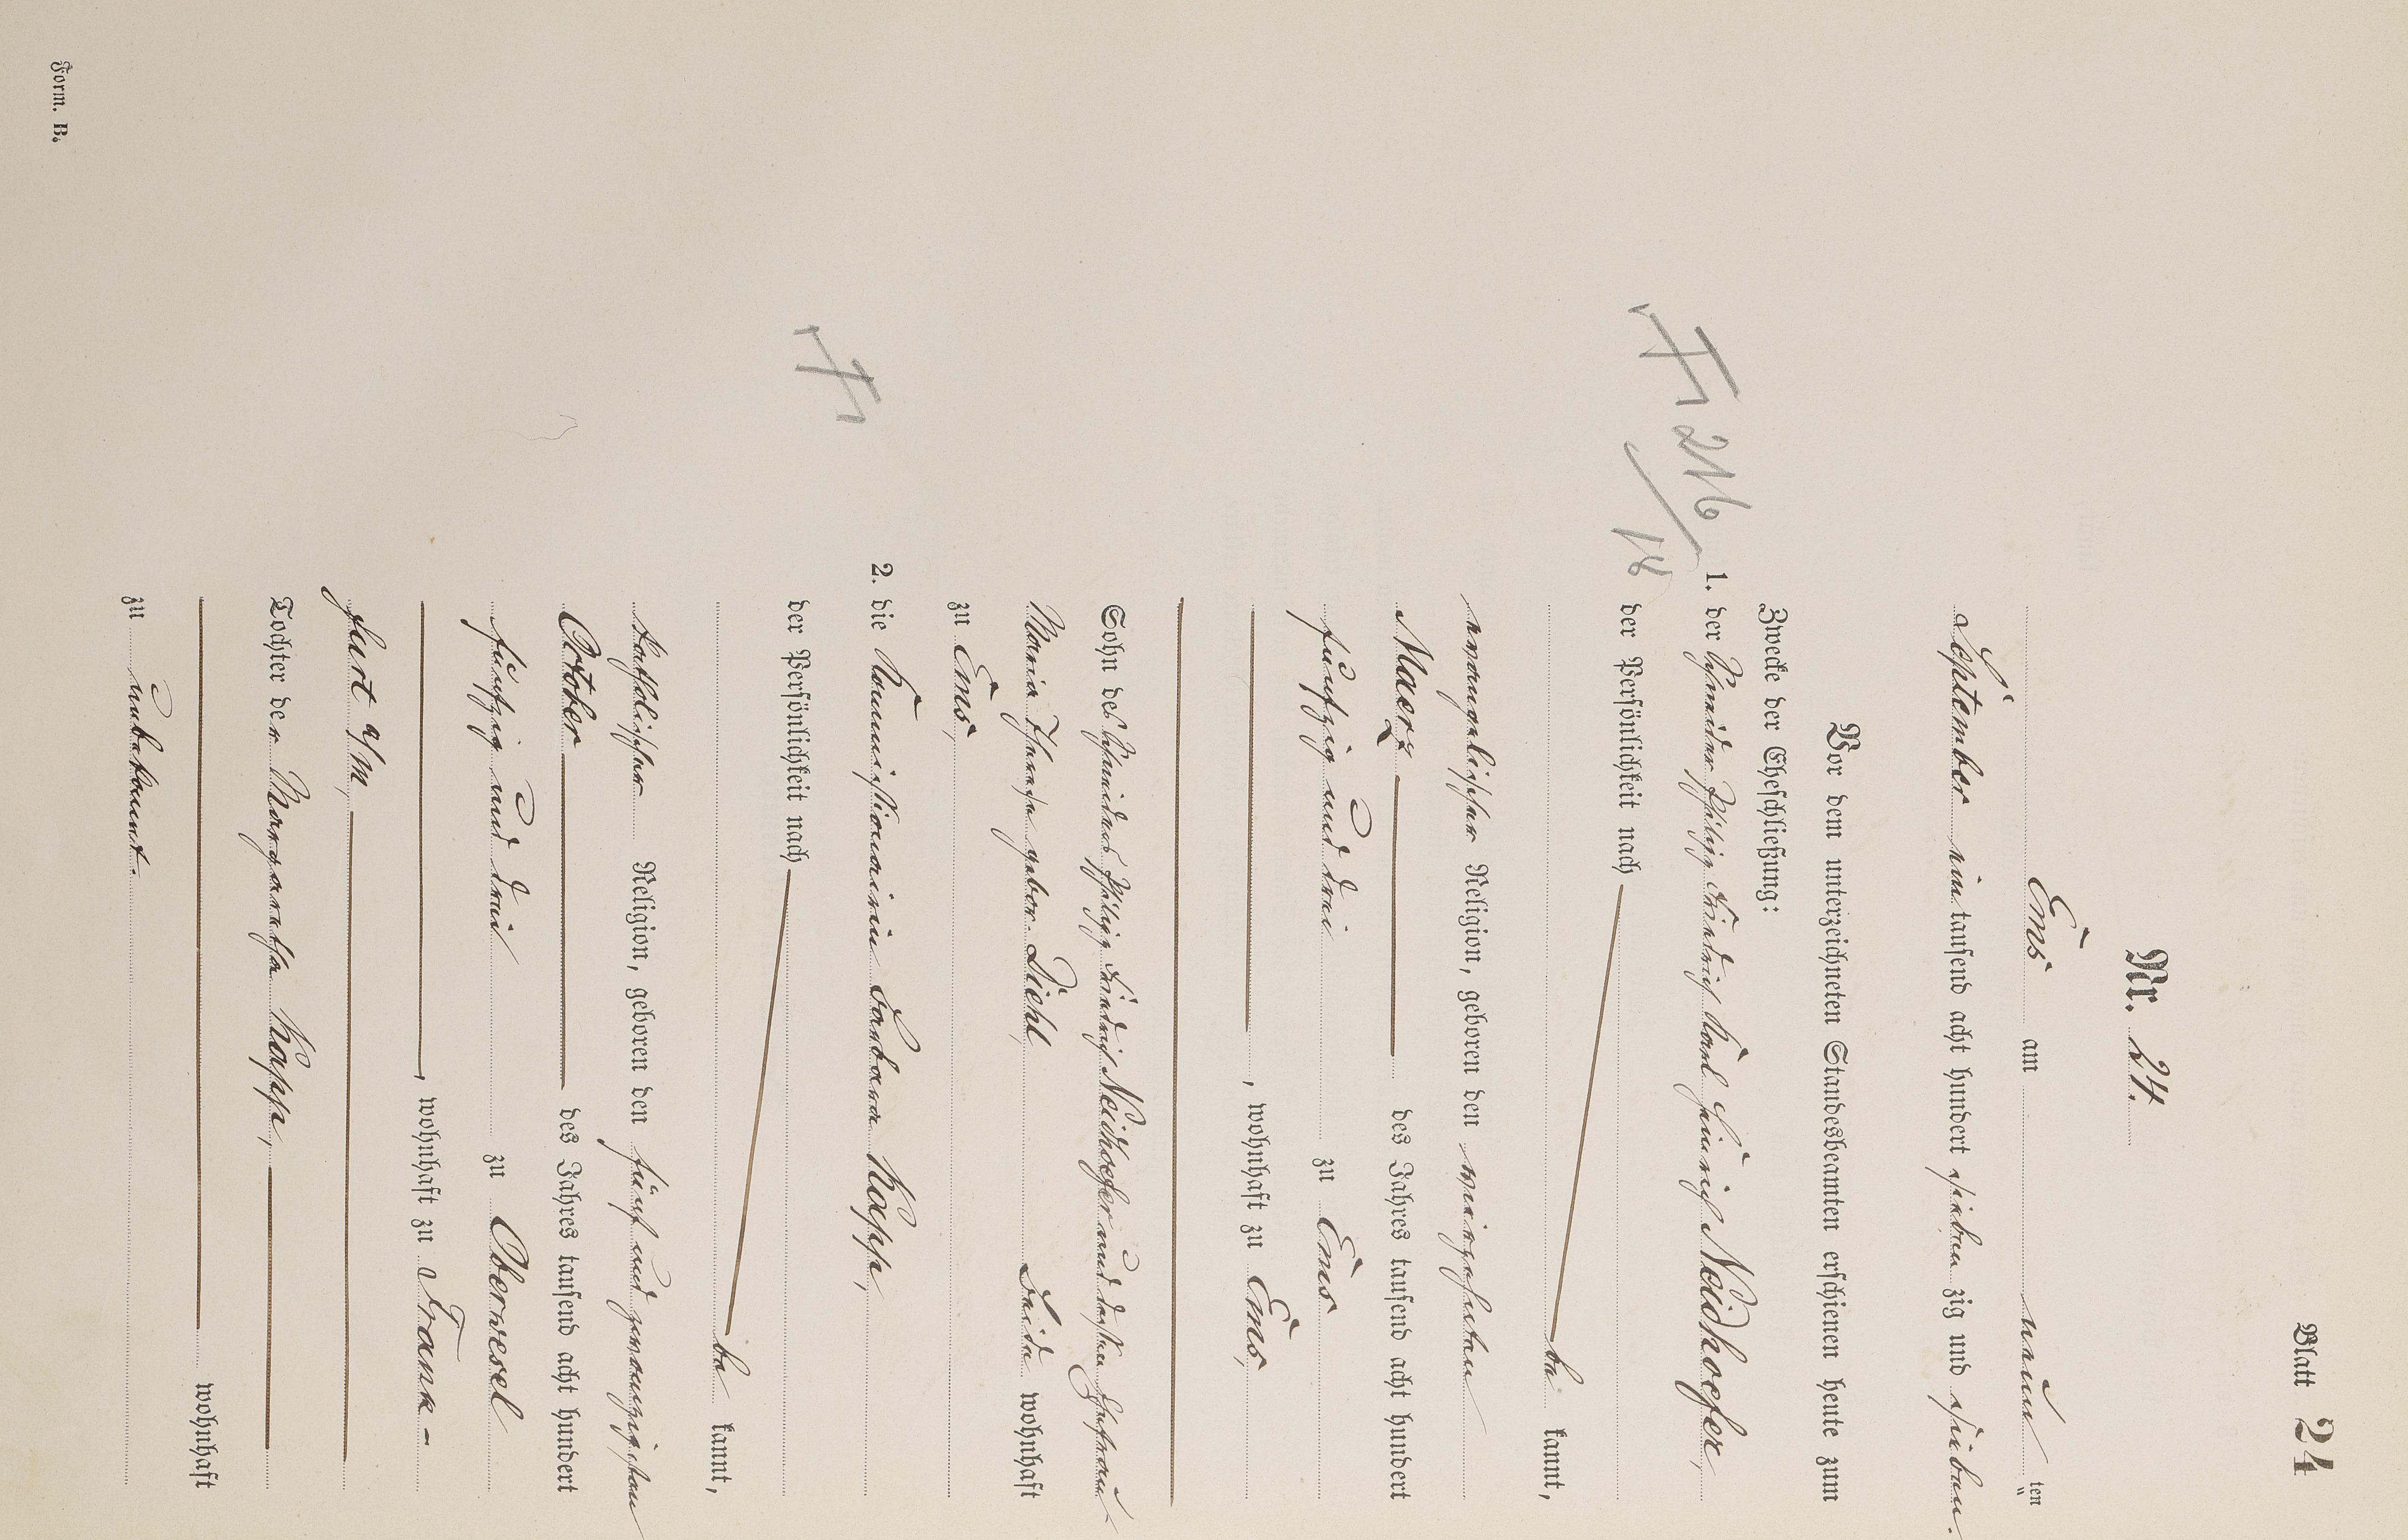 Blatt 24
Nr. 24.
Ems am neun ten
September ein tausend acht hundert sieben zig und sieben.
Vor dem unterzeichneten Standesbeamten erschienen heute zum
Zwecke der Eheschließung:
1. der Schneider Philipp Friedrich Karl Heinrich Neidhoefer,
der Persönlichkeit nach
be kannt,
evangelischer Religion, geboren den vierzehnten
Maerz des Jahres tausend acht hundert
fünfzig und drei zu Ems
, wohnhaft zu Ems,
Sohn des Schneiders Philipp Friedrich Neidhoefer und dessen Ehefrau
Maria Therese gebor. Diehl, Beide wohnhaft
zu Ems,
2. die Barbara Kapp,
der Persönlichkeit nach
be kannt,
katholischer Religion, geboren den fünf und zwanzigsten
October des Jahres tausend acht hundert
fünfzig und drei zu Oberwesel
, wohnhaft zu Frank-
furt a/M,
Tochter der Margaretha Kapp,
wohnhaft
zu unbekannt.
Form. B.
216